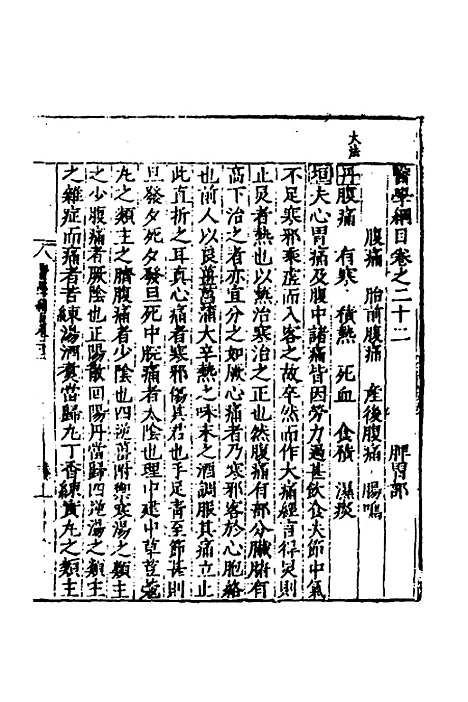 醫學綱目卷之二十二　脾胃部
腹痛　胎前腹痛　產後腹痛　腸鳴
大法
丹腹痛　有寒　積熱　死血　食積　濕痰
垣夫心胃痛及腹中諸痛皆因勞力過甚飲食失節中氣
不足寒邪乘虛而入客之故卒然而作大痛經言得炅則
止炅者熱也以熱治寒治之正也然腹痛有部分臟腑有
高下治之者亦宜分之如厥心痛者乃寒邪客於心胞絡
也前人以良薑菖蒲大辛熱之味末之酒調服其痛立止
此直折之耳真心痛者寒邪傷其君也手足青至節甚則
旦發夕死夕發旦死中脘痛者太陰也理中建中草荳蔻
丸之類主之臍腹痛者少陰也四逆薑附御寒湯之類主
之少腹痛者厥陰也正陽散回陽丹當歸四逆湯之類主
之雜症而痛者苦練湯酒煮當歸丸丁香練實丸之類主